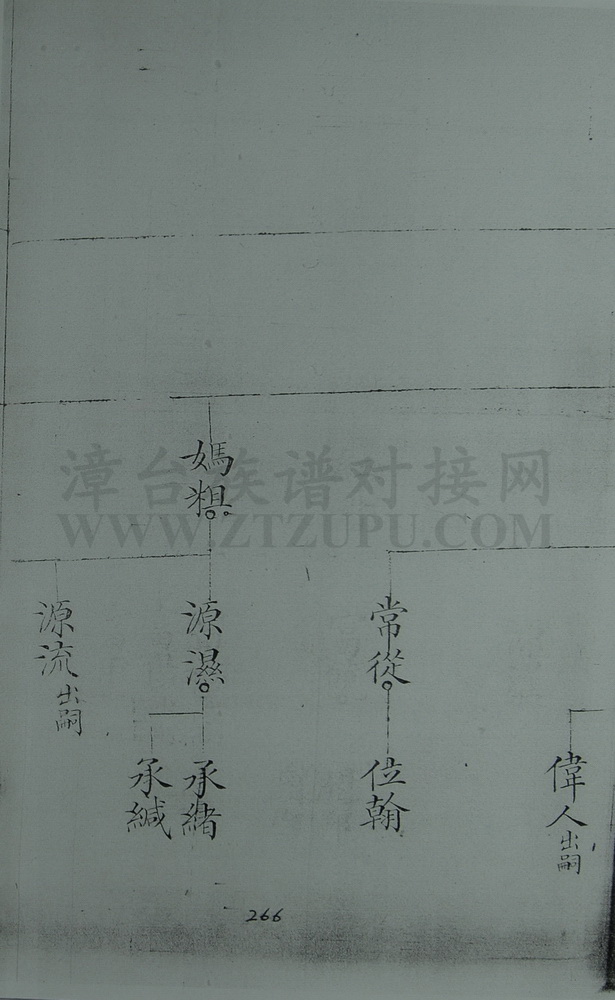 漳台族谱对接网
WWW.ZTZUPU.COM
偉人出嗣
常從
位翰
媽
源濕
承緒
承緘
源流出嗣
266